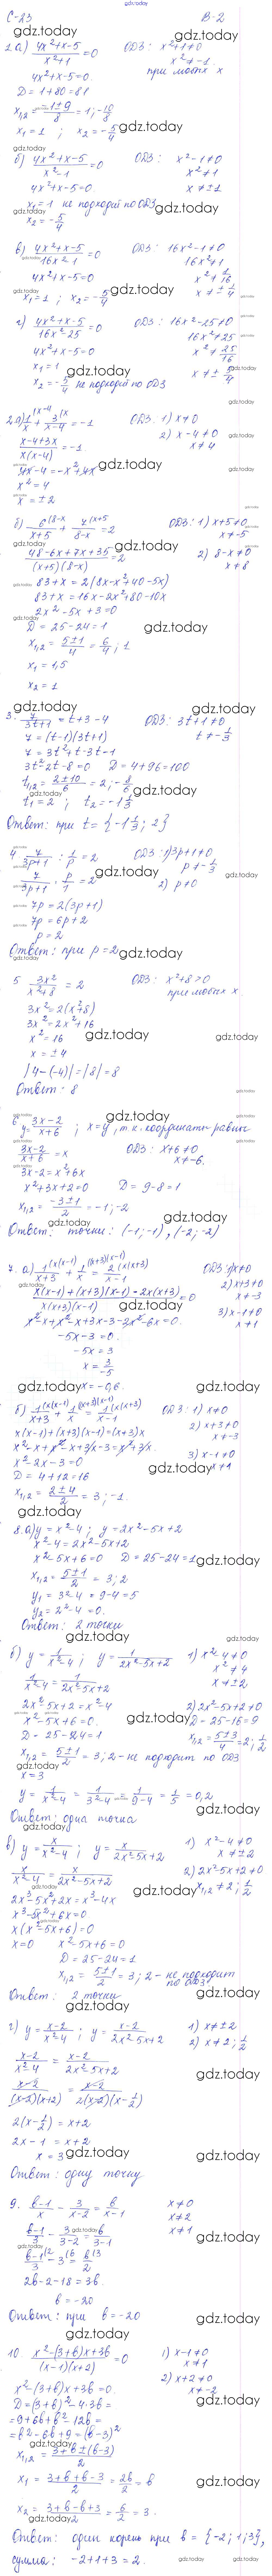 gdz.today
С-23 В-2
1.а) (4x²+x-5)/(x²+1) = 0 ОДЗ: x²+1≠0
x² ≠ -1
4x²+x-5=0 при любых x
D = 1+80=81
x₁,₂ = (-1±9)/8 = 1; -10/8
x₁ = 1 ; x₂ = -5/4
б) (4x²+x-5)/(x²-1) = 0 ОДЗ: x²-1≠0
x² ≠ 1
4x²+x-5=0 x ≠ ±1
x₁ = 1 не подходит по ОДЗ
x₂ = -5/4
в) (4x²+x-5)/(16x²-1) = 0 ОДЗ: 16x²-1≠0
16x²≠1
4x²+x-5=0 x² ≠ 1/16
x₁ = 1 ; x₂ = -5/4 x ≠ ±1/4
г) (4x²+x-5)/(16x²-25) = 0 ОДЗ: 16x²-25≠0
16x²≠25
4x²+x-5=0 x² ≠ 25/16
x₁ = 1 x ≠ ±5/4
x₂ = -5/4 не подходит по ОДЗ
2.а) 1/x + 3/(x-4) = -1 ОДЗ: 1) x≠0
(x-4+3x)/(x(x-4)) = -1 2) x-4≠0
x≠4
4x-4 = -x²+4x
x² = 4
x = ±2
б) 6/(x+5) + 7/(8-x) = 2 ОДЗ: 1) x+5≠0
x≠-5
(48-6x+7x+35)/((x+5)(8-x)) = 2 2) 8-x≠0
x≠8
83+x = 2(8x-x²+40-5x)
83+x = 16x-2x²+80-10x
2x²-5x+3=0
D = 25-24=1
x₁,₂ = (5±1)/4 = 6/4; 1
x₁ = 1,5
x₂ = 1
3. 7/(3t+1) = t+3-4 ОДЗ: 3t+1≠0
7 = (t-1)(3t+1) t ≠ -1/3
7 = 3t²+t-3t-1
3t²-2t-8=0 D = 4+96=100
t₁,₂ = (2±10)/6 = 2; -8/6
t₁ = 2 ; t₂ = -1 1/3
Ответ: при t = {-1 1/3; 2}
4. 7/(3p+1) : 1/p = 2 ОДЗ: 1) 3p+1≠0
p ≠ -1/3
7/(3p+1) · p/1 = 2 2) p≠0
7p = 2(3p+1)
7p = 6p+2
p = 2
Ответ: при p=2
5 3x²/(x²+8) = 2 ОДЗ: x²+8>0
при любых x
3x² = 2(x²+8)
3x² = 2x²+16
x² = 16
x = ±4
|4-(-4)| = |8| = 8
Ответ: 8
6 y = (3x-2)/(x+6) ; x=y, т.к. координаты равны
(3x-2)/(x+6) = x ОДЗ: x+6≠0
x≠-6.
3x-2 = x²+6x
x²+3x+2=0 D = 9-8=1
x₁,₂ = (-3±1)/2 = -1; -2
Ответ: точки: (-1;-1), (-2;-2)
7. а) 1/(x+3) + 1/x = 2/(x-1) ОДЗ: 1) x≠0
2) x+3≠0
x≠-3
(x(x-1)+(x+3)(x-1)-2x(x+3))/(x(x+3)(x-1)) = 0 3) x-1≠0
x≠1
x²-x+x²-x+3x-3-2x²-6x=0.
-5x-3=0.
-5x=3
x = 3/-5
x = -0,6.
б) 1/(x+3) + 1/x = 1/(x-1) ОДЗ: 1) x≠0
x(x-1)+(x+3)(x-1)=(x+3)x 2) x+3≠0
x≠-3
x²-x+x²-x+3x-3=x²+3x. 3) x-1≠0
x≠1
x²-2x-3=0
D = 4+12=16
x₁,₂ = (2±4)/2 = 3; -1.
8. а) y=x²-4 ; y=2x²-5x+2
x²-4=2x²-5x+2
x²-5x+6=0 D=25-24=1
x₁,₂ = (5±1)/2 = 3; 2
y₁ = 3²-4 = 9-4=5
y₂ = 2²-4 = 0.
Ответ: 2 точки
б) y = 1/(x²-4) ; y = 1/(2x²-5x+2) 1) x²-4≠0
x²≠4
1/(x²-4) = 1/(2x²-5x+2) x≠±2
2x²-5x+2=x²-4 2) 2x²-5x+2≠0
x²-5x+6=0. D=25-16=9
D = 25-24=1 x₁,₂ = (5±3)/4 = 2; 1/2
x₁,₂ = (5±1)/2 = 3; 2- не подходит по ОДЗ
x=3
y = 1/(x²-4) = 1/(3²-4) = 1/(9-4) = 1/5 = 0,2
Ответ: одна точка
в) y = x/(x²-4) ; y = x/(2x²-5x+2) 1) x²-4≠0
x≠±2
x/(x²-4) = x/(2x²-5x+2) 2) 2x²-5x+2≠0
x₁,₂ ≠ 2; 1/2
2x³-5x²+2x=x³-4x
x³-5x²+6x=0
x(x²-5x+6)=0
x=0 x²-5x+6=0
D = 25-24=1
x₁,₂ = (5±1)/2 = 3; 2 - не подходит по ОДЗ
Ответ: 2 точки
г) y = (x-2)/(x²-4) ; y = (x-2)/(2x²-5x+2) 1) x≠±2
2) x≠2; 1/2
(x-2)/(x²-4) = (x-2)/(2x²-5x+2)
(x-2)/((x-2)(x+2)) = (x-2)/(2(x-2)(x-1/2))
2(x-1/2) = x+2
2x-1 = x+2
x=3
Ответ: одну точку
9. (b-1)/x - 3/(x-2) = b/(x-1) x≠0
x≠2
(b-1)/3 - 3/(3-2) = b/(3-1) x≠1
(b-1)/3 - 3 = b/2
2b-2-18=3b.
b=-20
Ответ: при b=-20
10 (x²-(3+b)x+3b)/((x-1)(x+2)) = 0 1) x-1≠0
x≠1
2) x+2≠0
x≠-2
x²-(3+b)x+3b=0.
D=(3+b)²-4·3b=
=9+6b+b²-12b=
=b²-6b+9=(b-3)²
x₁,₂ = (3+b±(b-3))/2
x₁ = (3+b+b-3)/2 = 2b/2 = b
x₂ = (3+b-b+3)/2 = 6/2 = 3.
Ответ: один корень при b={-2; 1; 3},
сумма: -2+1+3=2.